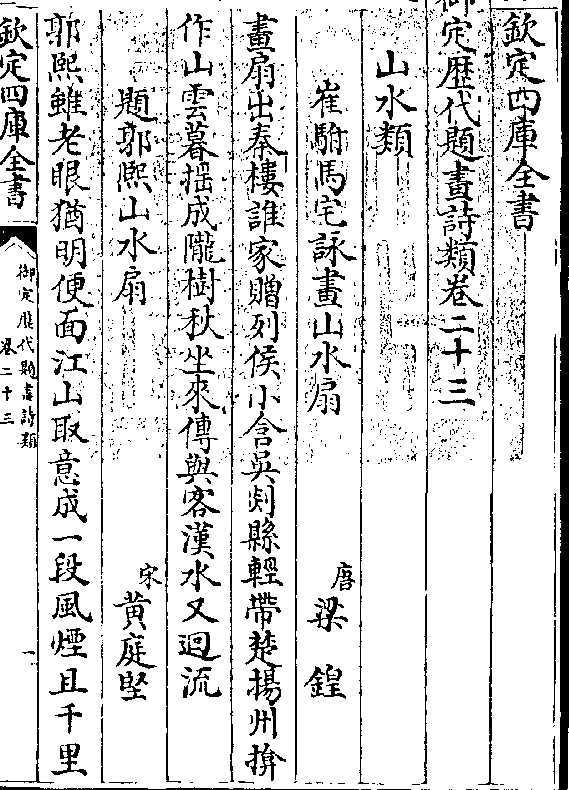 欽定四庫全書
御定歴代題畫詩類卷二十三
山水類
崔駙馬宅詠畫山水扇 唐 梁鍠
畫扇出秦樓誰家贈列侯小含吳剡縣輕帶楚揚州揜
作山雲暮揺成隴樹秋坐來傳與客漢水又迴流
題郭熙山水扇 宋 黄庭堅
郭熙雖老眼猶明便面江山取意成一段風煙且千里
欽定四庫全書
御定歴代題畫詩類
卷二十三
一